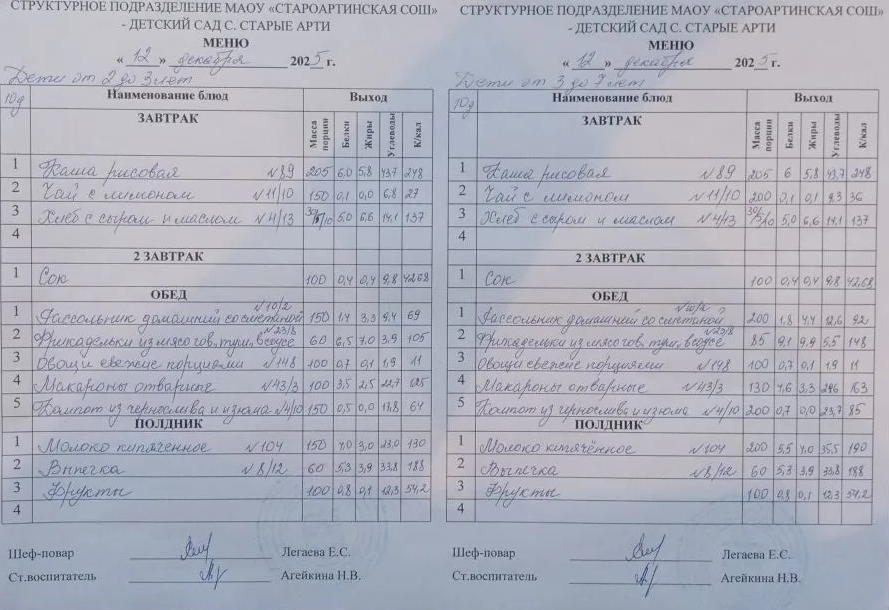 СТРУКТУРНОЕ ПОДРАЗДЕЛЕНИЕ МАОУ «СТАРОАРТИНСКАЯ СОШ»
- ДЕТСКИЙ САД С. СТАРЫЕ АРТИ
МЕНЮ
« 12 » декабря 2025 г.
Дети от 2 до 3 лет
10д Наименование блюд Выход
ЗАВТРАК Масса порции Белки Жиры Углеводы К/кал
1 Каша рисовая №89 205 6,0 5,8 43,7 248
2 Чай с лимоном №11/10 150 0,1 0,0 6,8 27
3 Хлеб с сыром и маслом №4/13 5,0 6,6 14,1 137
4
2 ЗАВТРАК
1 Сок 100 0,4 0,4 9,8 42,68
ОБЕД
1 Рассольник домашний со сметаной №10/2 150 1,4 3,3 9,4 69
2 Фрикадельки из мяса гов, туш, в соусе №23/8 60 6,5 7,0 3,9 105
3 Овощи свежие порциями №148 100 0,7 0,1 1,9 11
4 Макароны отварные №43/3 100 3,5 2,5 22,7 125
5 Компот из чернослива и изюма №4/10 150 0,5 0,0 17,8 64
ПОЛДНИК
1 Молоко кипяченное №104 150 4,0 3,0 23,0 130
2 Выпечка №8/12 60 5,3 3,9 33,8 188
3 Фрукты 100 0,8 0,1 12,3 54,2
4
Шеф-повар Легаева Е.С.
Ст.воспитатель Агейкина Н.В.
СТРУКТУРНОЕ ПОДРАЗДЕЛЕНИЕ МАОУ «СТАРОАРТИНСКАЯ СОШ»
- ДЕТСКИЙ САД С. СТАРЫЕ АРТИ
МЕНЮ
« 12 » декабря 2025 г.
Дети от 3 до 7 лет
10д Наименование блюд Выход
ЗАВТРАК Масса порции Белки Жиры Углеводы К/кал
1 Каша рисовая №89 205 6 5,8 43,7 248
2 Чай с лимоном №11/10 200 0,1 0,1 9,3 36
3 Хлеб с сыром и маслом №4/13 5,0 6,6 14,1 137
4
2 ЗАВТРАК
1 Сок 100 0,4 0,4 9,8 42,68
ОБЕД
1 Рассольник домашний со сметаной №10/2 200 1,8 4,4 12,6 92
2 Фрикадельки из мяса гов, туш, в соусе №23/8 85 9,1 9,9 5,5 148
3 Овощи свежие порциями №148 100 0,7 0,1 1,9 11
4 Макароны отварные №43/3 130 4,6 3,3 29,6 163
5 Компот из чернослива и изюма №4/10 200 0,7 0,0 23,7 85
ПОЛДНИК
1 Молоко кипячённое №104 200 5,5 4,0 35,5 190
2 Выпечка №8/12 60 5,3 3,9 33,8 188
3 Фрукты 100 0,8 0,1 12,3 54,2
4
Шеф-повар Легаева Е.С.
Ст.воспитатель Агейкина Н.В.